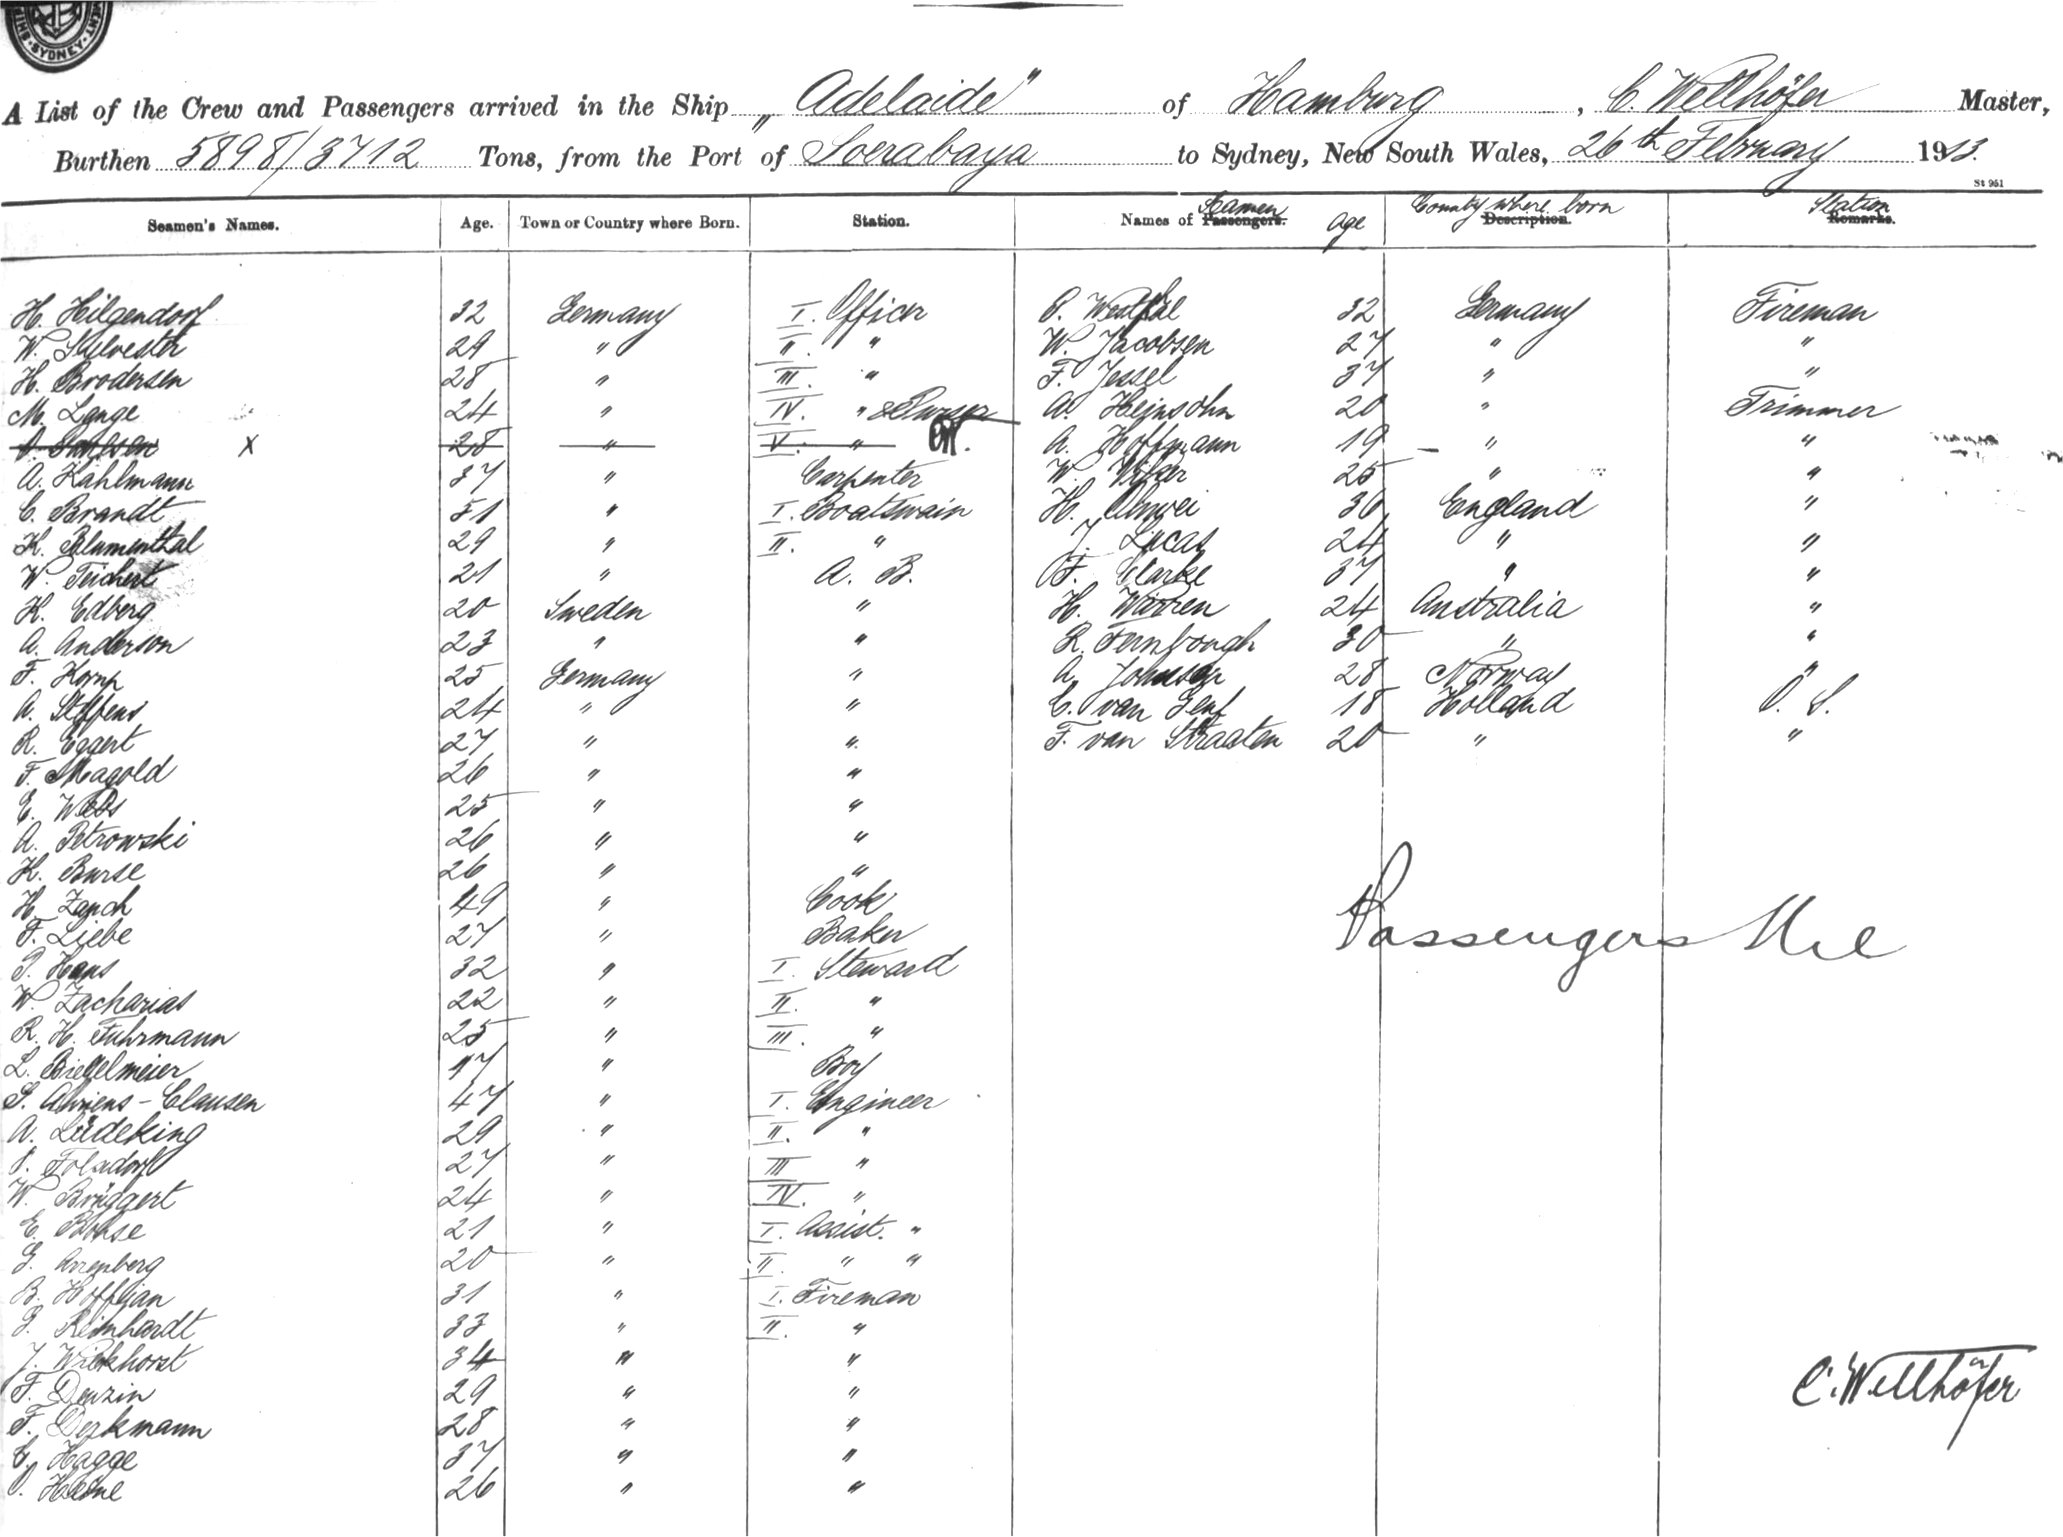 SYDNEY
A List of the Crew and Passengers arrived in the Ship „Adelaide" of Hamburg, C. Wellhöfer Master,
Burthen 5898/3712 Tons, from the Port of Soerabaya to Sydney, New South Wales, 26th February 1913.
St 951
Seamen's Names. Age. Town or Country where Born. Station. Names of Passengers. Seamen Age Description. Country where born Remarks. Station
H. Hilgendorf 32 Germany I. Officer P. Westfal 32 Germany Fireman
W. Sylvester 29 " II. " W. Jacobsen 27 " "
H. Brodersen 28 " III. " F. Jessel 37 " "
M. Lange 24 " IV. " & Purser A. Heinsohn 20 " Trimmer
X 28 " V. " A. Hoffmann 19 " "
A. Kahlmann 37 " Carpenter W. 25 " "
C. Brandt 51 " I. Boatswain H. 36 England "
K. Blumenthal 29 " II. " J. Lucas 24 " "
W. Teichert 21 " A. B. F. Clarke 37 " "
K. Edberg 20 Sweden " H. Warren 24 Australia "
A. Anderson 23 " " R. Fernbough 30 " "
F. Kornp 25 Germany " A. Johnsen 28 Norway "
A. Steffens 24 " " C. van Gent 18 Holland O. S.
R. Eggert 27 " " F. van Straaten 20 " "
F. Magold 26 " "
E. 25 " "
A. Petrowski 26 " "
K. Burse 26 " "
H. Zanch 49 " Cook
F. Liebe 27 " Baker
P. Hans 32 " I. Steward
W. Zacharias 22 " II. "
R. H. Fuhrmann 25 " III. "
L. Biegelmeier 17 " Boy
Ahrens-Clausen 47 " I. Engineer
A. Lüdeking 29 " II. "
27 " III "
W. Brüggert 24 " IV. "
E. Bohse 21 " I. Assist. "
G. Arrenberg 20 " II. " "
B. Hoffjan 31 " I. Fireman
G. Reinhardt 33 " II. "
J. Wiekhorst 34 " "
F. Denzin 29 " "
F. Derkmann 28 " "
C. Hagge 37 " "
Heine 26 " "
Passengers Nil
C. Wellhöfer